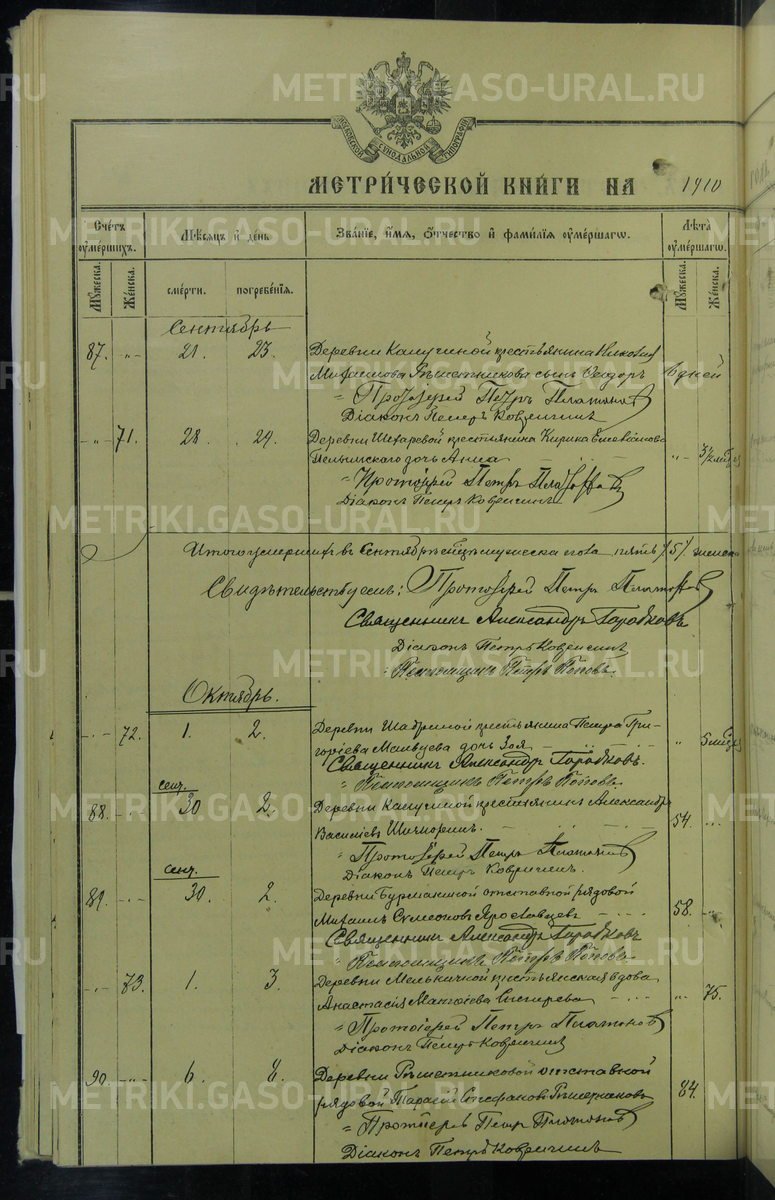 МОСКОВСКОЙ СѴНОДАЛЬНОЙ ТИПОГРАФІИ
МЕТРИ́ЧЕСКОЙ КНИ́ГИ НА 1910
Сче́тъ ᲂу҆ме́ршихъ. Мѣ́сяцъ и҆ де́нь Зва́нїе, и҆́мя, ѻ҆́тчество и҆ фами́лїя ᲂу҆ме́ршагѡ. Лѣ́та ᲂу҆ме́ршагѡ.
Му́жеска. Же́нска. сме́рти. погребе́нїя. Му́жеска. Же́нска.
Сентябрь
87. -"- 21. 23. Деревни Калугиной крестьянина
Решетникова сынъ Ѳеодоръ 6 дней
" Протоіерей Петръ Платоновъ
Діаконъ Петръ Ковригинъ
-"- 71. 28. 29. Деревни крестьянина Кирика
дочь Анна
" Протоіерей Петръ Платоновъ
Діаконъ Петръ Ковригинъ
Итого умершихъ въ Сентябрѣ мѣсяцѣ мужеска пола пять /5/ женска
Свидѣтельствуемъ: Протоіерей Петръ Платоновъ
Священникъ Александръ Городковъ
Діаконъ Петръ Ковригинъ
Псаломщикъ Петръ Поповъ.
Октябрь.
-"- 72. 1. 2. Деревни крестьянина Петра Гри-
горіева Мальцева дочь Зоя
Священникъ Александръ Городковъ.
" Псаломщикъ Петръ Поповъ
сент.
88. -"- 30 2. Деревни Калугиной крестьянинъ Александръ
Василіевъ 54.
" Протоіерей Петръ Платоновъ
Діаконъ Петръ Ковригинъ.
сент.
89. -"- 30. 2. Деревни Бурмакиной отставной рядовой
Михаилъ Симеоновъ Ярославцевъ 58.
Священникъ Александръ Городковъ
" Псаломщикъ Петръ Поповъ
-"- 73. 1. 3. Деревни Мельничной крестьянская вдова
Анастасія Матѳіева 75.
" Протоіерей Петръ Платоновъ
Діаконъ Петръ Ковригинъ
90. -"- 6. 8. Деревни Рѣшетниковой отставной
рядовой Тарасій Стефановъ 84.
" Протоіерей Петръ Платоновъ
Діаконъ Петръ Ковригинъ
METRIKI.GASO-URAL.RU